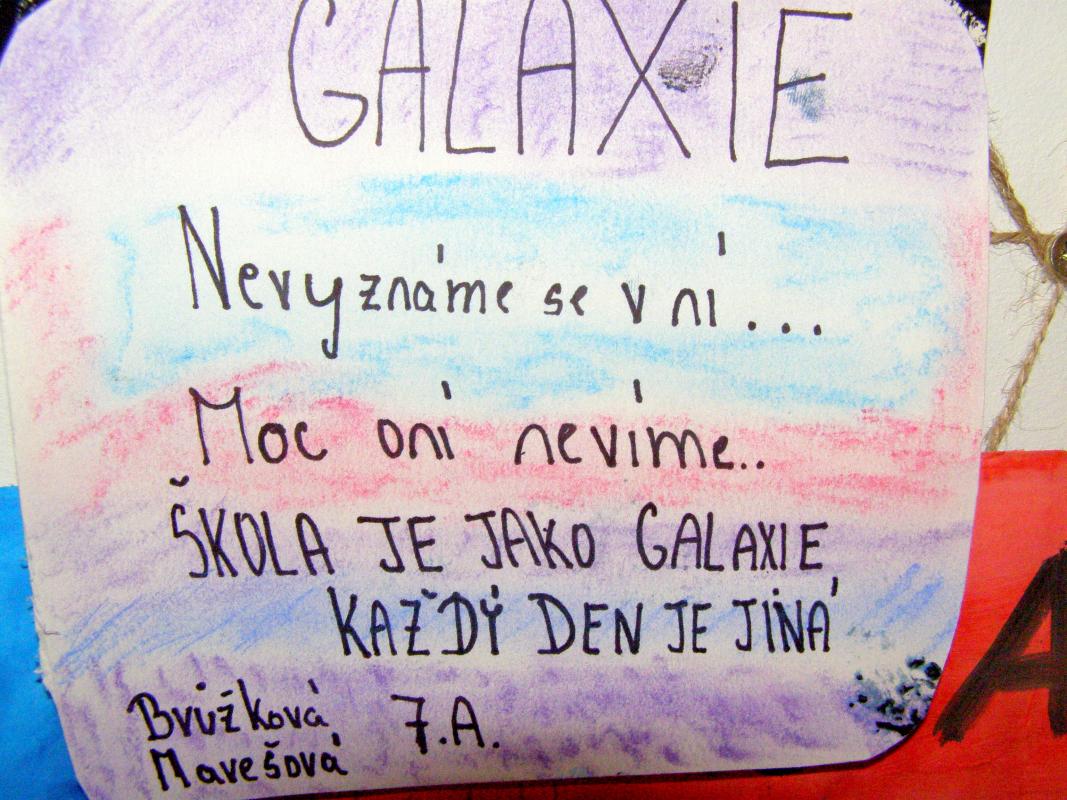 GALAXIE
Nevyznáme se v ní...
Moc oní nevíme..
ŠKOLA JE JAKO GALAXIE,
KAŽDÝ DEN JE JINÁ
Bvůžková 7.A.
Mavešová
A